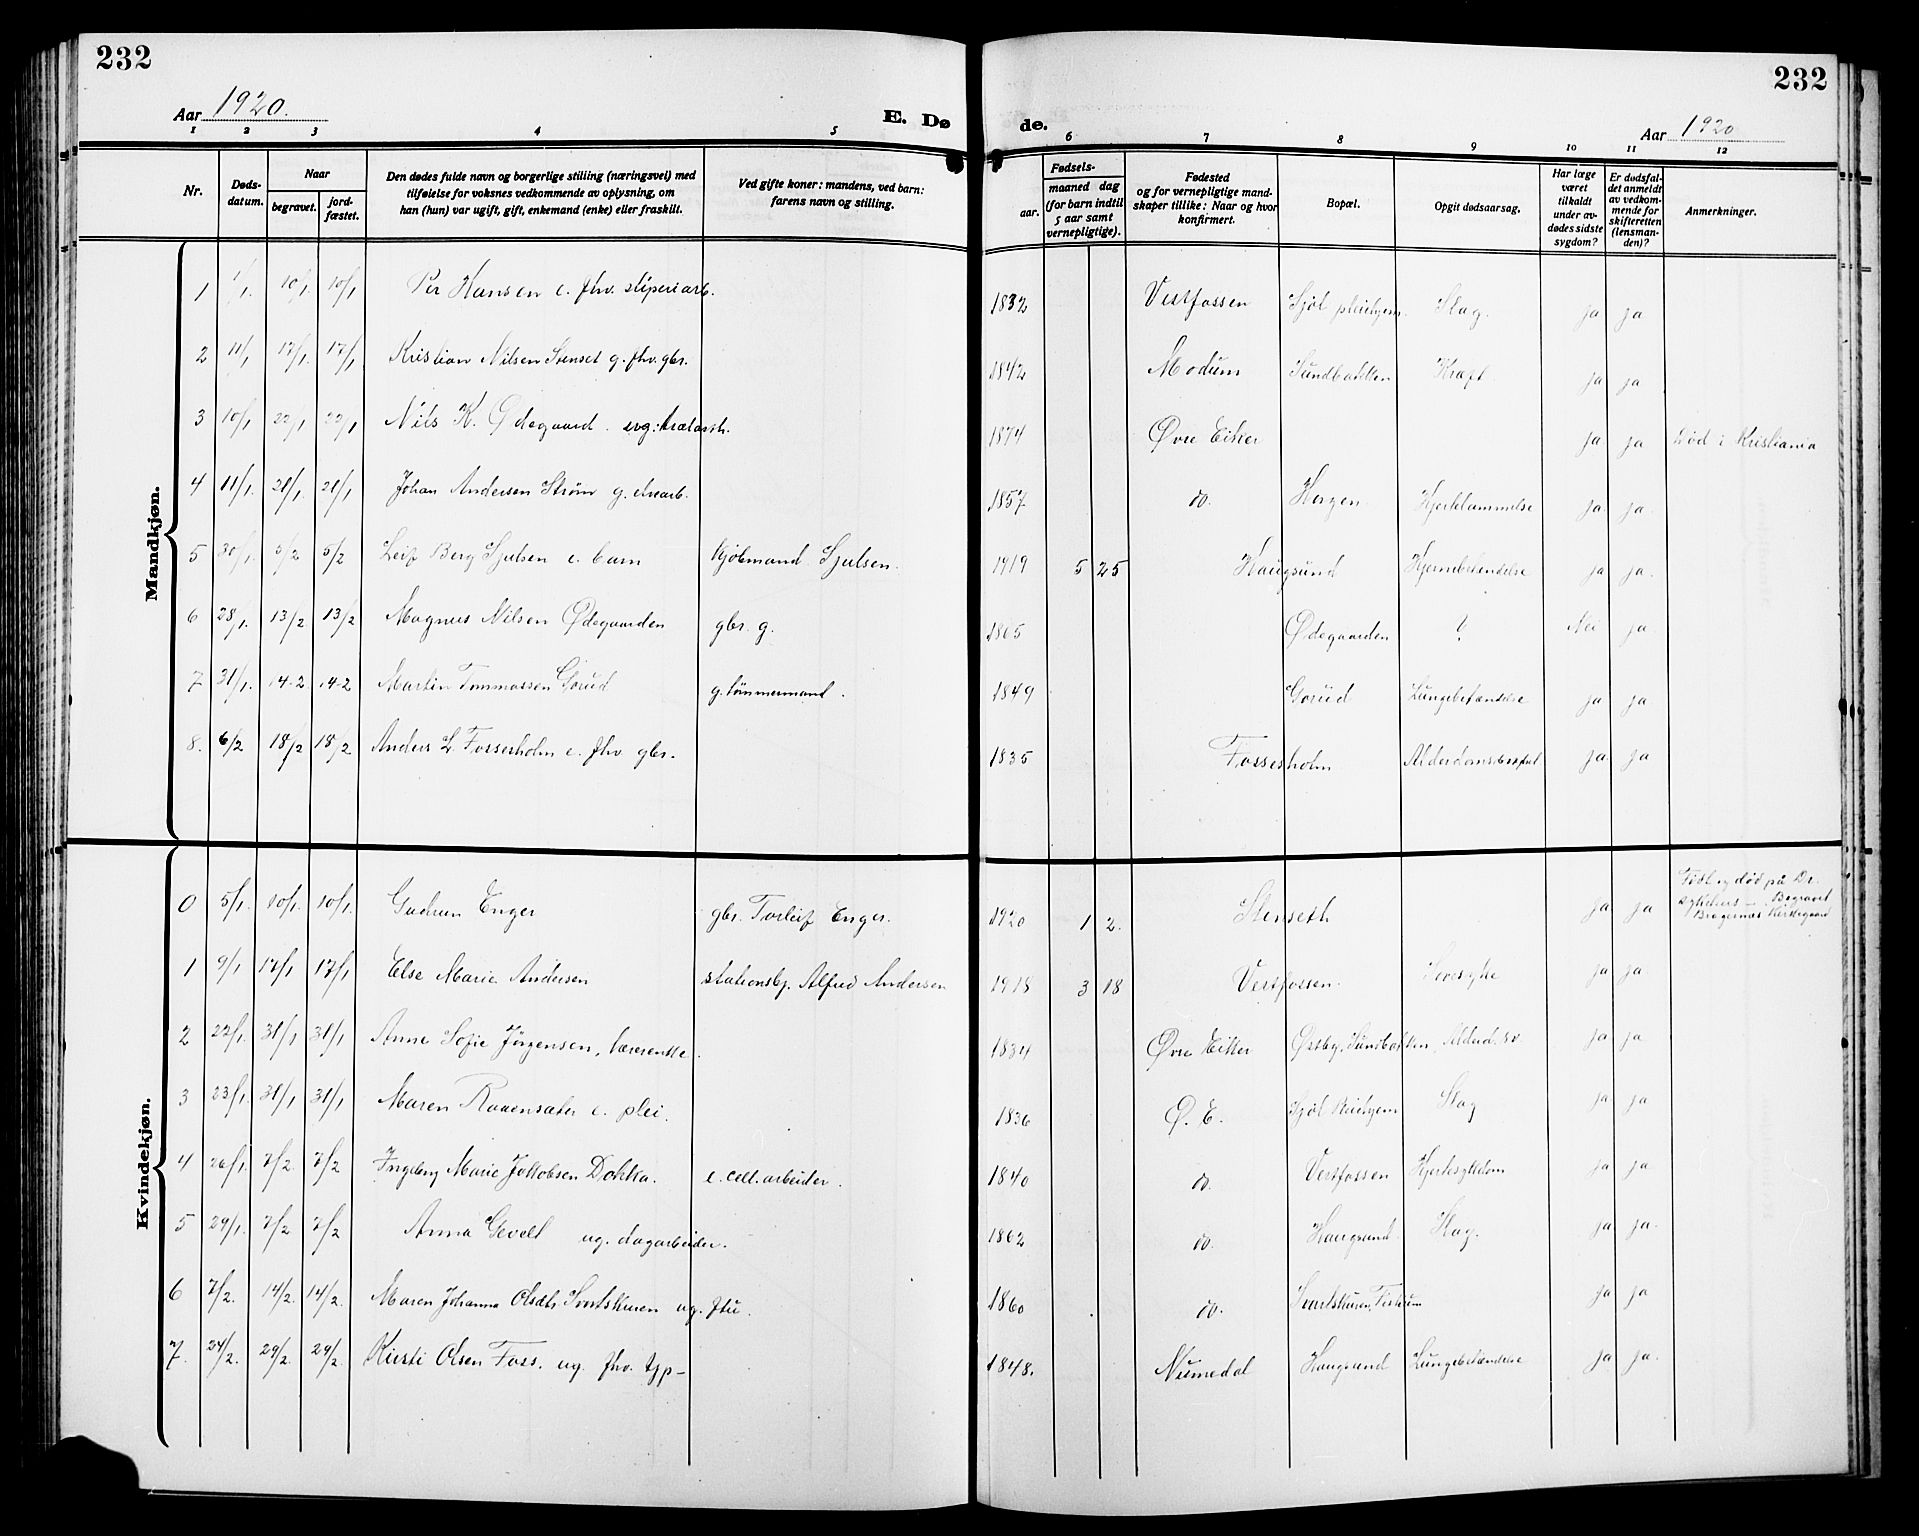 232
232
Aar 1920.
E. Dø
de.
Aar 1920
1 2 3 4 5
6 7 8 9 10 11 12
Nr.
Døds-
datum.
Naar
begravet.
jord-
fæstet.
Den dødes fulde navn og borgerlige stilling (næringsvei) med
tilføielse for voksnes vedkommende av oplysning, om
han (hun) var ugift, gift, enkemand (enke) eller fraskilt.
Ved gifte koner: mandens, ved barn:
farens navn og stilling.
Fødsels-
aar.
maaned dag
(for barn indtil
5 aar samt
vernepligtige).
Fødested
og for vernepligtige mand-
skaper tillike: Naar og hvor
konfirmert.
Bopæl.
Opgit dødsaarsag.
Har læge
været
tilkaldt
under av-
dødes sidste
sygdom?
Er dødsfal-
det anmeldt
av vedkom-
mende for
skifteretten
(lensman-
den)?
Anmerkninger.
Mandkjøn.
1 1/1 10/1 10/1 Per Hansen e. fhv. sliperiarb. 1832 Vestfossen Sjøl pleiehjem Slag. ja ja
2 11/1 17/1 17/1 Kristian Nilsen Stenset g. fhv. gbr. 1842 Modum Sundbakken Kræft ja ja
3 10/1 22/1 22/1 Nils K. Ødegaard 1874 Øvre Eiker ja ja Død i Kristiania
4 11/1 21/1 21/1 Johan Andersen Strøm g. 1857 do. Horgen Hjertelammelse ja ja.
5 30/1 5/2 5/2 Leif Berg Sjulsen e. barn Kjøbmand Sjulsen. 1919 5 25 Haugsund Hjernebetændelse ja ja.
6 28/1 13/2 13/2 Magnus Nilsen Ødegaarden gbr. g. 1865 Ødegaarden ? Nei ja
7 31/1 14-2 14-2 Martin Tommassen Gorud g. tømmermand. 1849 Gorud Lungebetændelse ja ja
8. 6/2 18/2 18/2 Anders L. Fossesholm e. fhv gbr. 1835 Fossesholm ja ja
Kvindekjøn.
0 5/1 10/1 10/1 Gudrun Enger gbr. Torleif Enger. 1920 1 2. Stenseth ja ja Født og død på Dr.
sykehus — Begravet
Bragernæs Kirkegaard
1 9/1 17/1 17/1 Else Marie Andersen stationsbj. Alfred Andersen 1918 3 18 Vestfossen. Sovesyke ja ja
2 22/1 31/1 31/1 Anne Sofie Jørgensen, lærerenke. 1834 Øvre Eiker Østby, Sundbakken, Alderd. sv. ja ja
3 23/1 31/1 31/1 Maren e. plei. 1836 Ø. E. Sjøl Pleiehjem Slag ja ja
4 26/1 7/2 7/2 Ingeborg Marie Jakobsen Dokka. e. cell. arbeider. 1840 do. Vestfossen Hjertesykdom ja ja
5 29/1 7/2 7/2 Anna Gevelt ug. dagarbeider. 1862 do. Haugsund Slag. ja ja.
6 7/2. 14/2. 14/2. Maren Johanna Olsdtr. Svartskuren ug. 1860 do. Svartskuren, Fiskum ja ja
7. 24/2. 29/2. 29/2 Kirsti Olsen Foss. ug. fhv. tjp- 1848. Numedal Haugsund Lungebetændelse ja ja.